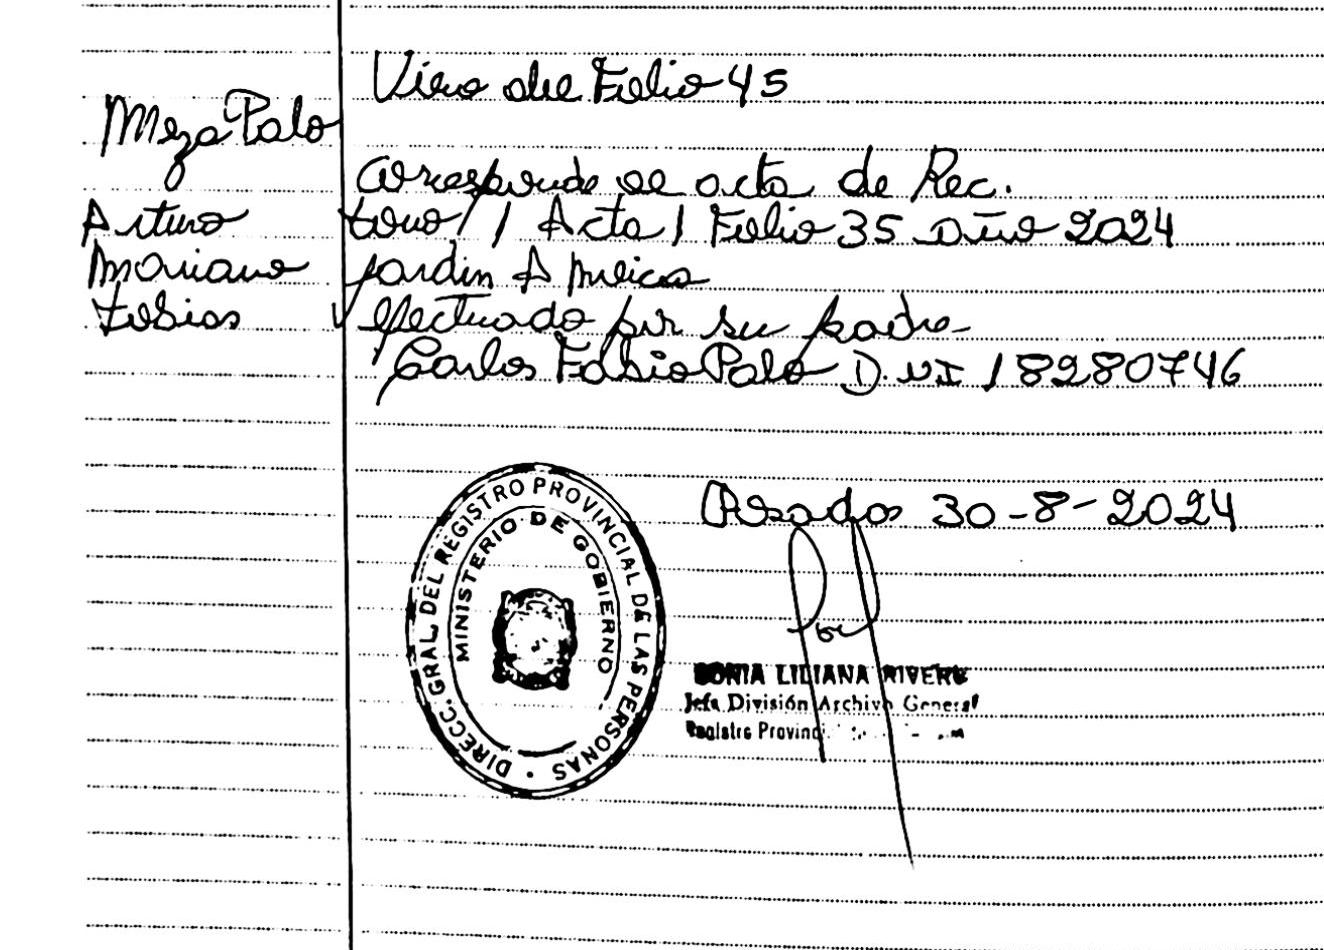 Viene del Folio 45
Meza Palo
Corresponde al acta de Rec.
Arturo
tomo 1 Acta 1 Folio 35 Año 2024
Mariano
Jardin America
Tobias
efectuado por su padre
Carlos Fabio Palo D.NI 18280746
Posadas 30-8-2024
DIRECC. GRAL. DEL REGISTRO PROVINCIAL DE LAS PERSONAS
MINISTERIO DE GOBIERNO
SONIA LILIANA RIVERO
Jefa División Archivo General
Registro Provincial